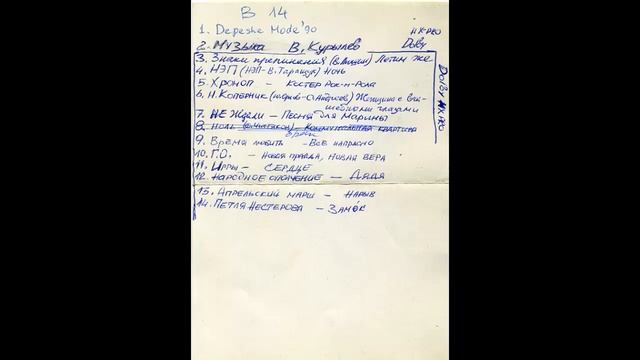 В 14
1. Depeshe Mode '90 HX-PRO
2. Музыка В. Курылёво Dolby
3. Знаки препинания Летим же
4. НЭП (НЭП-В. Таранчук) Ночь
5. Хроноп - Костер Рок-н-Рола
6. Н. Коперник Женщина с вол-
шебными глазами
7. НЕ Ждали - Песня для Марины
8. Ноль - Коммунальная квартира
9. Время любить - Все напрасно
10. Г.О. - новая правда, новая вера
11. Игры - Сердце
12. Народное ополчение - Дядя
13. Апрельский марш - Нарыв
14. Петля Нестерова - Замок
Dolby HX PRO